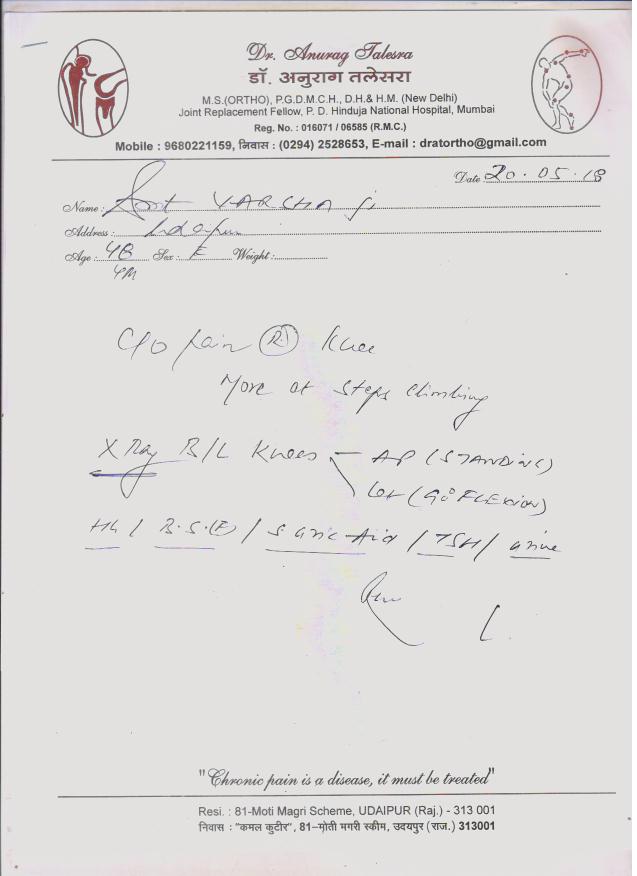 Dr. Anurag Talesra
डॉ. अनुराग तलेसरा
M.S.(ORTHO), P.G.D.M.C.H., D.H.& H.M. (New Delhi)
Joint Replacement Fellow, P. D. Hinduja National Hospital, Mumbai
Reg. No. : 016071 / 06585 (R.M.C.)
Mobile : 9680221159, निवास : (0294) 2528653, E-mail : dratortho@gmail.com
Date 20.05.18
Name : Smt VARCHA ji
Address : Udaipur
Age : 48 Sex : F Weight :
4M
C/o Pain (R) Knee
More at Steps Climbing
X Ray B/L Knees — AP (STANDING)
Lat (90° FLEXION)
Hb / B.S.(F) / S. uric Acid / TSH / urine
"Chronic pain is a disease, it must be treated"
Resi. : 81-Moti Magri Scheme, UDAIPUR (Raj.) - 313 001
निवास : "कमल कुटीर", 81–मोती मगरी स्कीम, उदयपुर (राज.) 313001